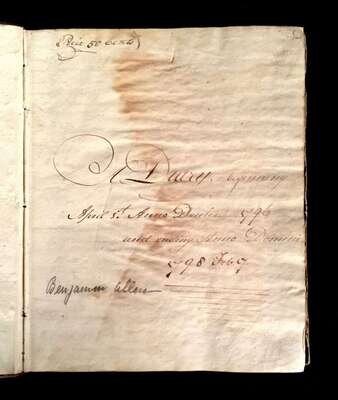 Price 50 cents
A Dairy, beginning
April 1st Anno Domini 1796
and ending Anno Domini
1798 Feb 7
Benjamin Allen